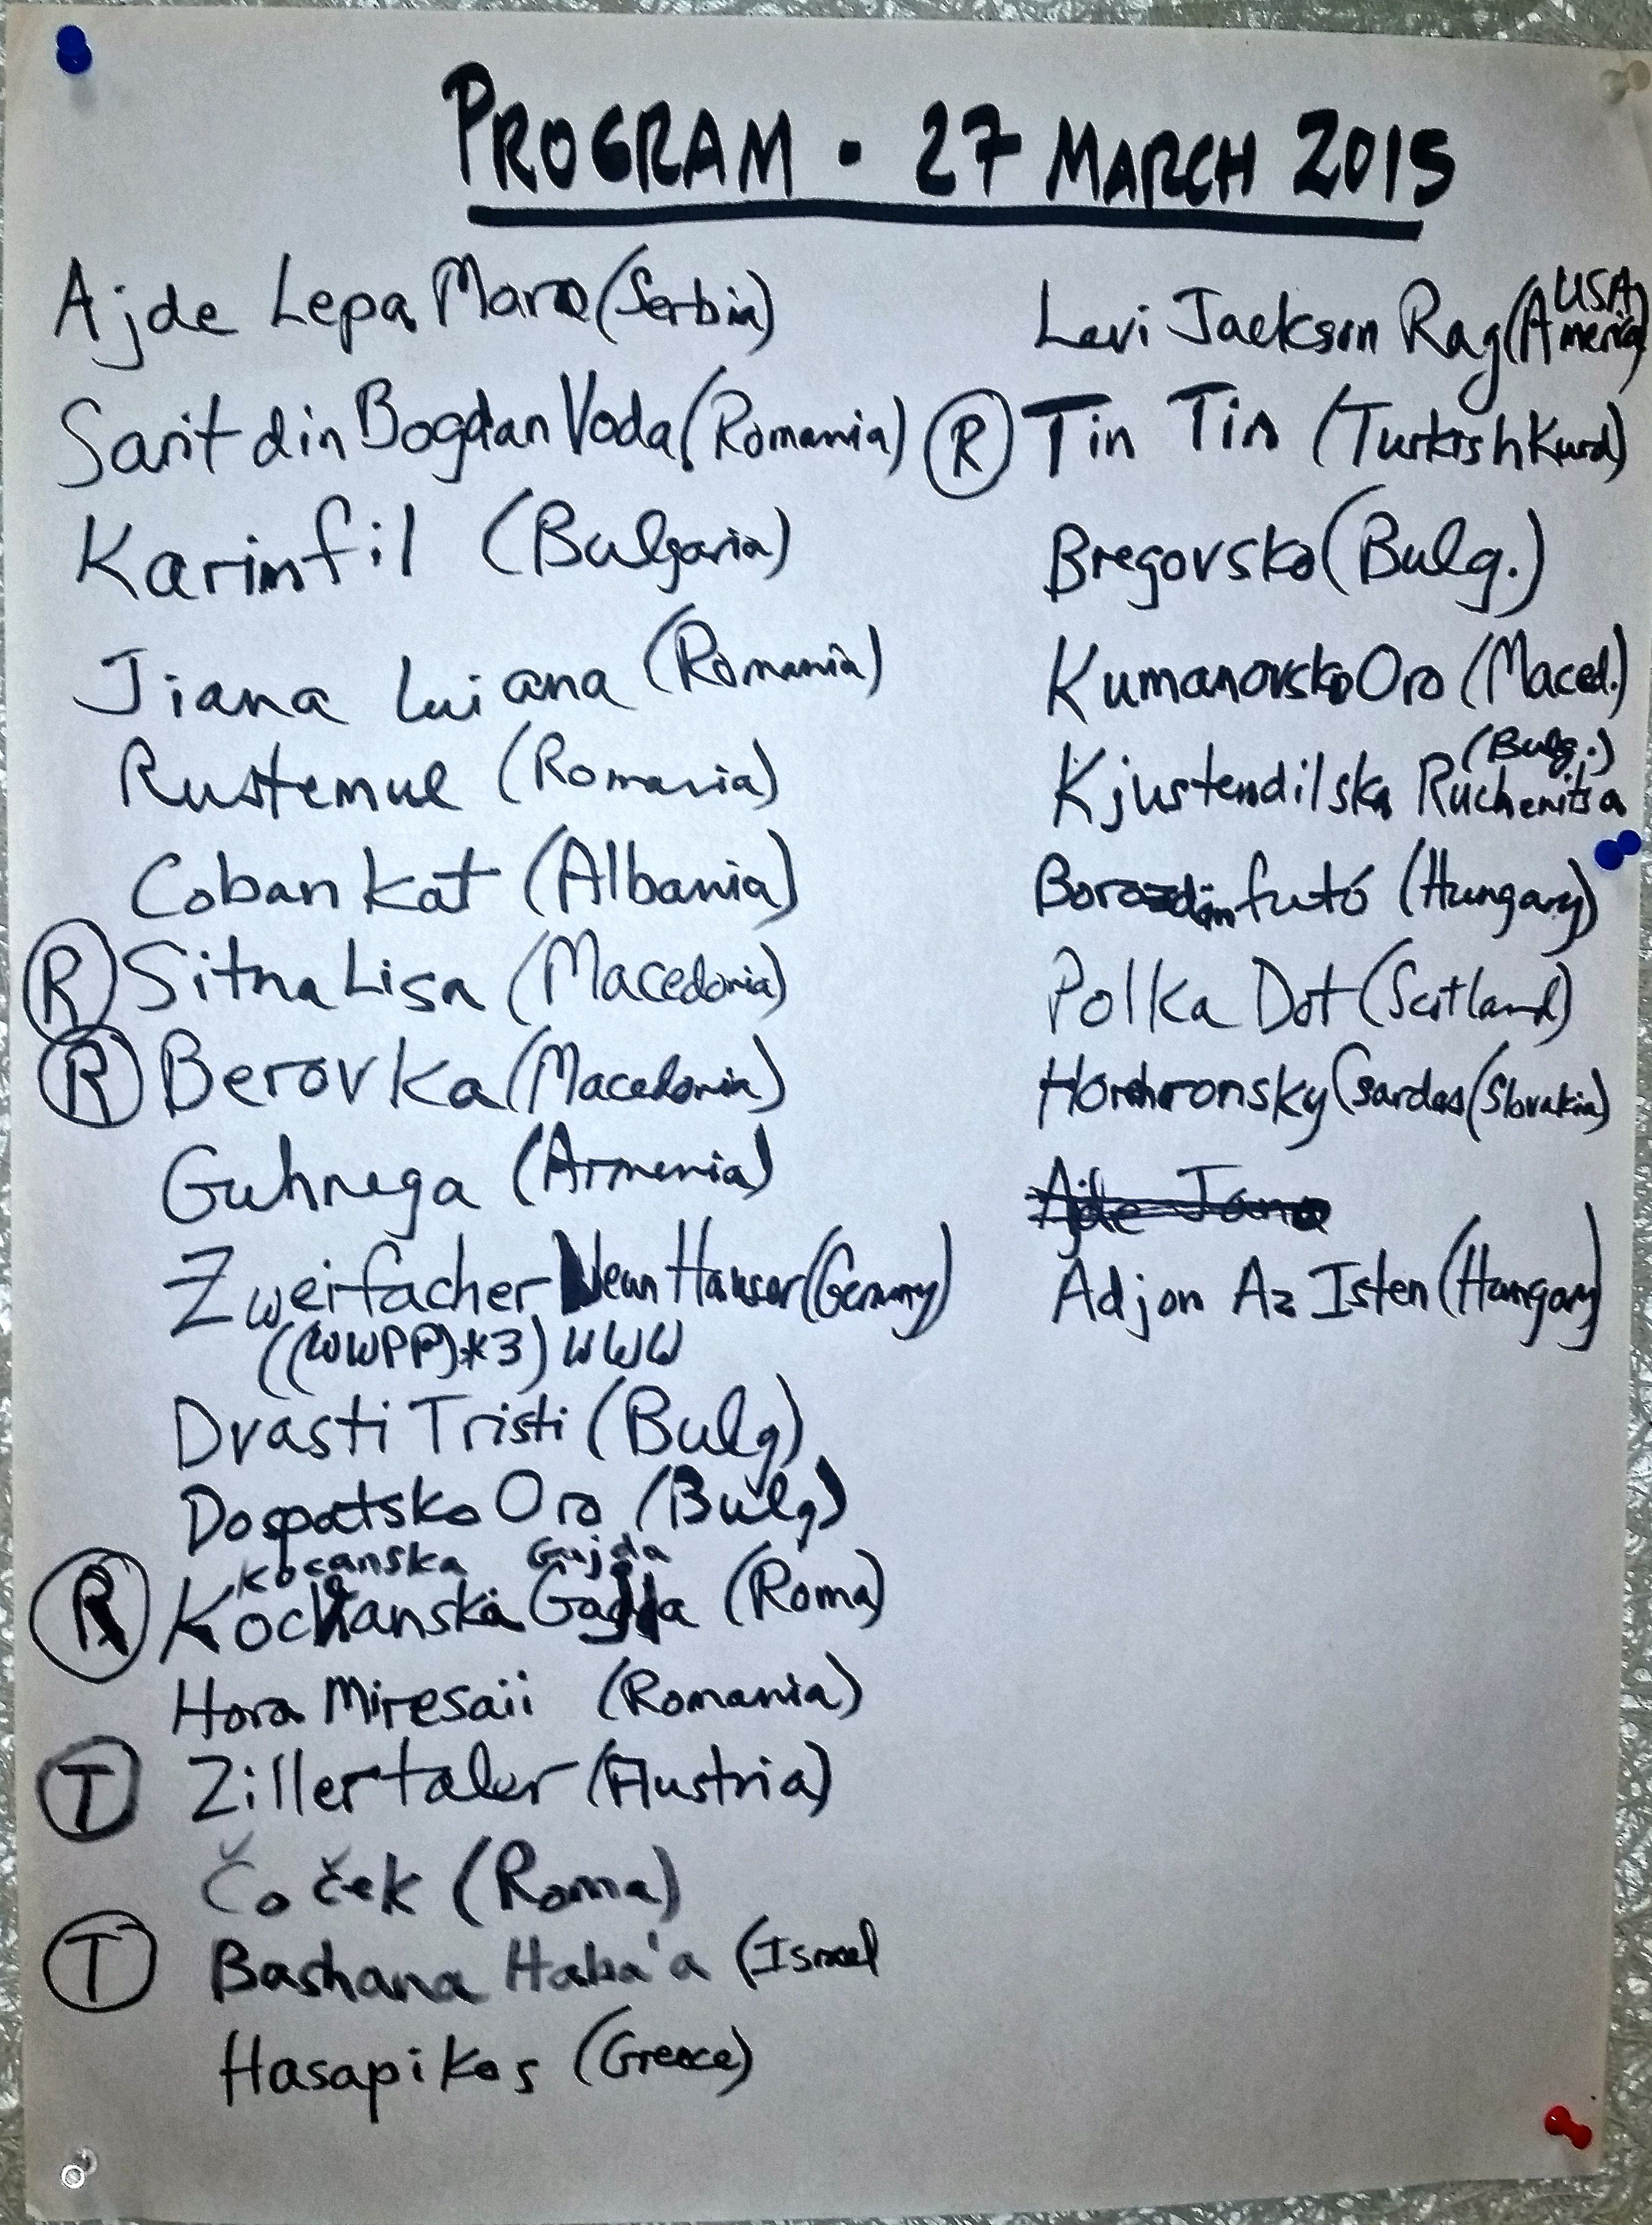 PROGRAM · 27 MARCH 2015
Ajde Lepa Maro (Serbia)
Sarit din Bogdan Voda (Romania)
Karimfil (Bulgaria)
Jiana Lui ana (Romania)
Rustemul (Romania)
Coban kat (Albania)
R Sitna Lisa (Macedonia)
R Berovka (Macedonia)
Guhnega (Armenia)
Zweifacher (Germany)
((WWPP)*3) WWW
Drasti Tristi (Bulg)
Dospatsko Oro (Bulg)
Kocanska Gajda
R Kochanska Gajda (Roma)
Hora Miresaii (Romania)
T Zillertaler (Austria)
Čoček (Roma)
T Bashana Haba'a (Israel
Hasapikos (Greece)
USA,
Levi Jackson Rag (America)
R Tin Tin (Turkish Kurd)
Bregovsko (Bulg.)
Kumanovsko Oro (Maced.)
(Bulg.)
Kjustendilska Ruchenitsa
futó (Hungary)
Polka Dot (Scotland)
Horehronsky Csardas (Slovakia)
Ajde Jano
Adjon Az Isten (Hungary)